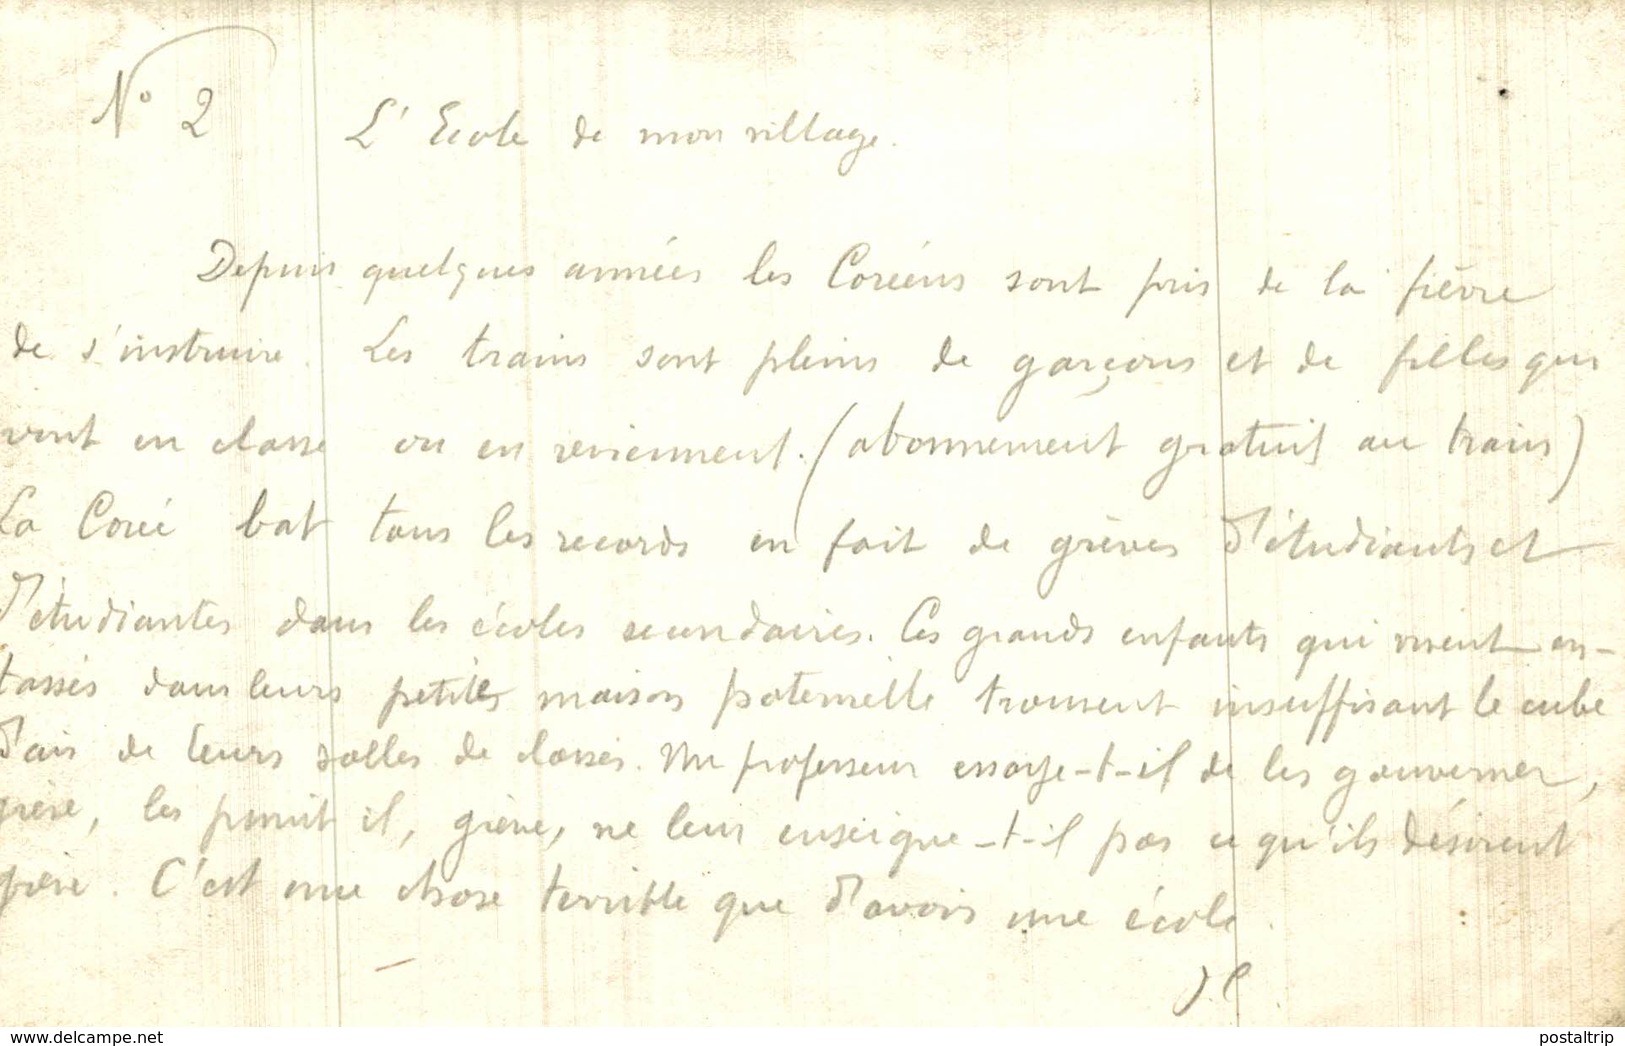 N° 2 L'Ecole de mon village.
Depuis quelques années les Coréens sont pris de la fièvre
de s'instruire. Les trains sont pleins de garçons et de filles qui
vont en classe ou en reviennent. (abonnement gratuit au train)
La Corée bat tous les records en fait de grèves d'étudiants et
d'étudiantes dans les écoles secondaires. Ces grands enfants qui vivent en-
tassés dans leurs petites maison paternelle trouvent insuffisant le cube
d'air de leurs salles de classes. Un professeur essaye-t-il de les gouverner,
grève, les punit il, grève, ne leur enseigne-t-il pas ce qu'ils désirent
grève. C'est une chose terrible que d'avoir une école.
J.C.
www.delcampe.net
postaltrip